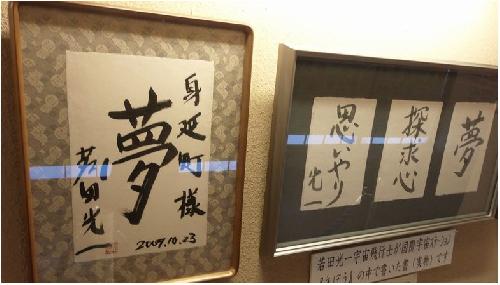 身延町様
夢
若田光一
2009.10.23
夢
探求心
思いやり
光一
若田光一宇宙飛行士が国際宇宙ステーション
『きぼう』の中で書いた書(実物)です